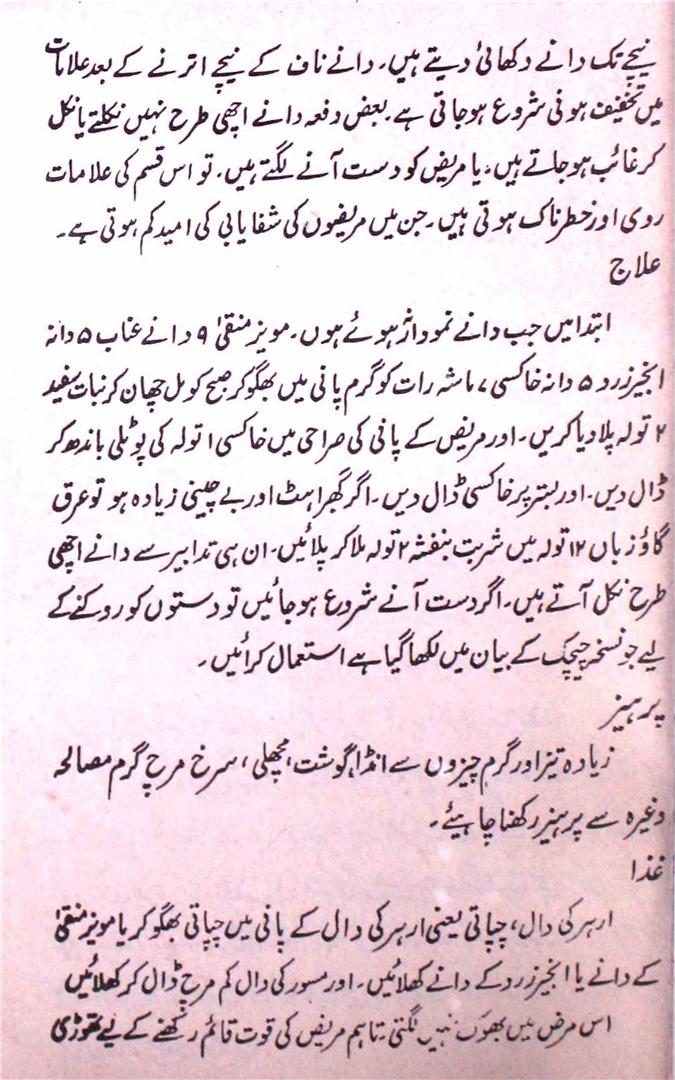 نیچے تک دانے دکھائی دیتے ہیں۔ دانے ناف کے نیچے اترنے کے بعد علامات
میں تخفیف ہونی شروع ہو جاتی ہے۔ بعض دفعہ دانے اچھی طرح نہیں نکلتے یا نکل
کر غائب ہو جاتے ہیں، یا مریض کو دست آنے لگتے ہیں۔ تو اس قسم کی علامات
ردی اور خطرناک ہوتی ہیں۔ جن میں مریضوں کی شفایابی کی امید کم ہوتی ہے۔
علاج
ابتدا میں جب دانے نمودار ہوئے ہوں۔ مویز منقیٰ ۹ دانے عناب ۵ دانہ
انجیر زرد ۵ دانہ خاکسی ۷ ماشہ رات کو گرم پانی میں بھگو کر صبح کو مل چھان کر نبات سفید
۲ تولہ پلا دیا کریں۔ اور مریض کے پانی کی صراحی میں خاکسی ۱ تولہ کی پوٹلی باندھ کر
ڈال دیں۔ اور بستر پر خاکسی ڈال دیں۔ اگر گھبراہٹ اور بے چینی زیادہ ہو تو عرق
گاؤزباں ۱۲ تولہ میں شربت بنفشہ ۲ تولہ ملا کر پلائیں۔ ان ہی تدابیر سے دانے اچھی
طرح نکل آتے ہیں۔ اگر دست آنے شروع ہو جائیں تو دستوں کو روکنے کے
لیے جو نسخہ چیچک کے بیان میں لکھا گیا ہے استعمال کرائیں۔
پرہیز
زیادہ تیز اور گرم چیزوں سے انڈا، گوشت، مچھلی، سرخ مرچ گرم مصالحہ
وغیرہ سے پرہیز رکھنا چاہیئے۔
غذا
ارہر کی دال، چپاتی یعنی ارہر کی دال کے پانی میں چپاتی بھگو کر یا مویز منقیٰ
کے دانے یا انجیر زرد کے دانے کھلائیں۔ اور مسور کی دال کم مرچ ڈال کر کھلائیں
اس مرض میں بھوک نہیں لگتی۔ تاہم مریض کی قوت قائم رکھنے کے لیے تھوڑی